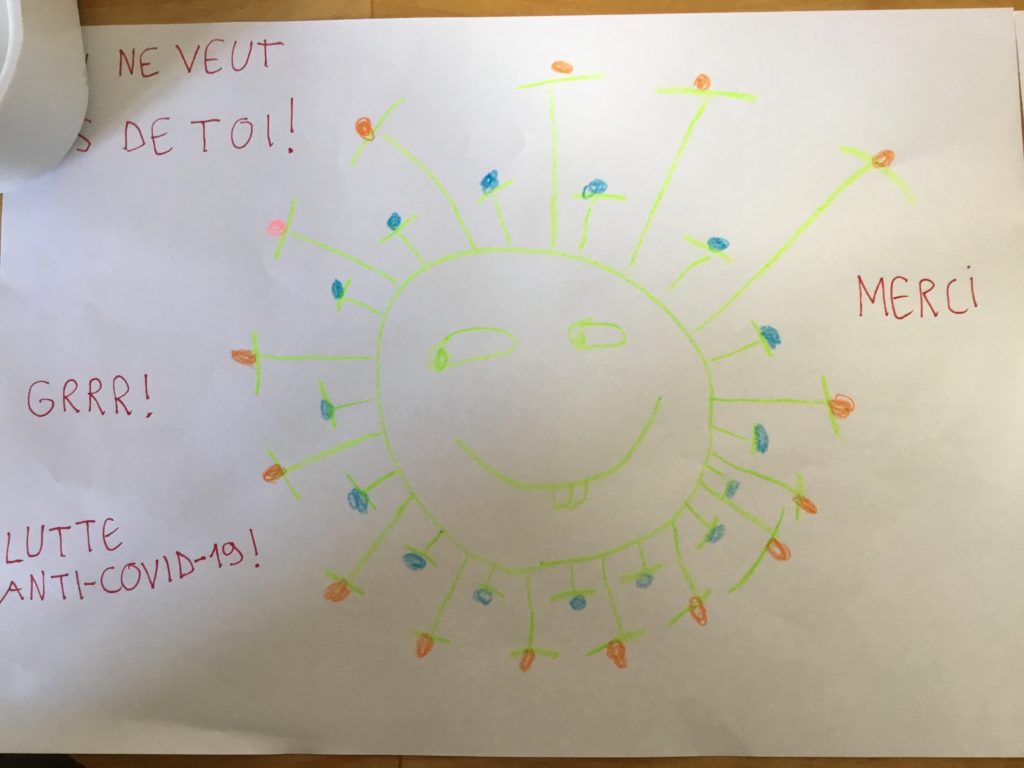 NE VEUT
DE TOI!
MERCi
GRRR!
LUTTE
ANTI-COVID-19!